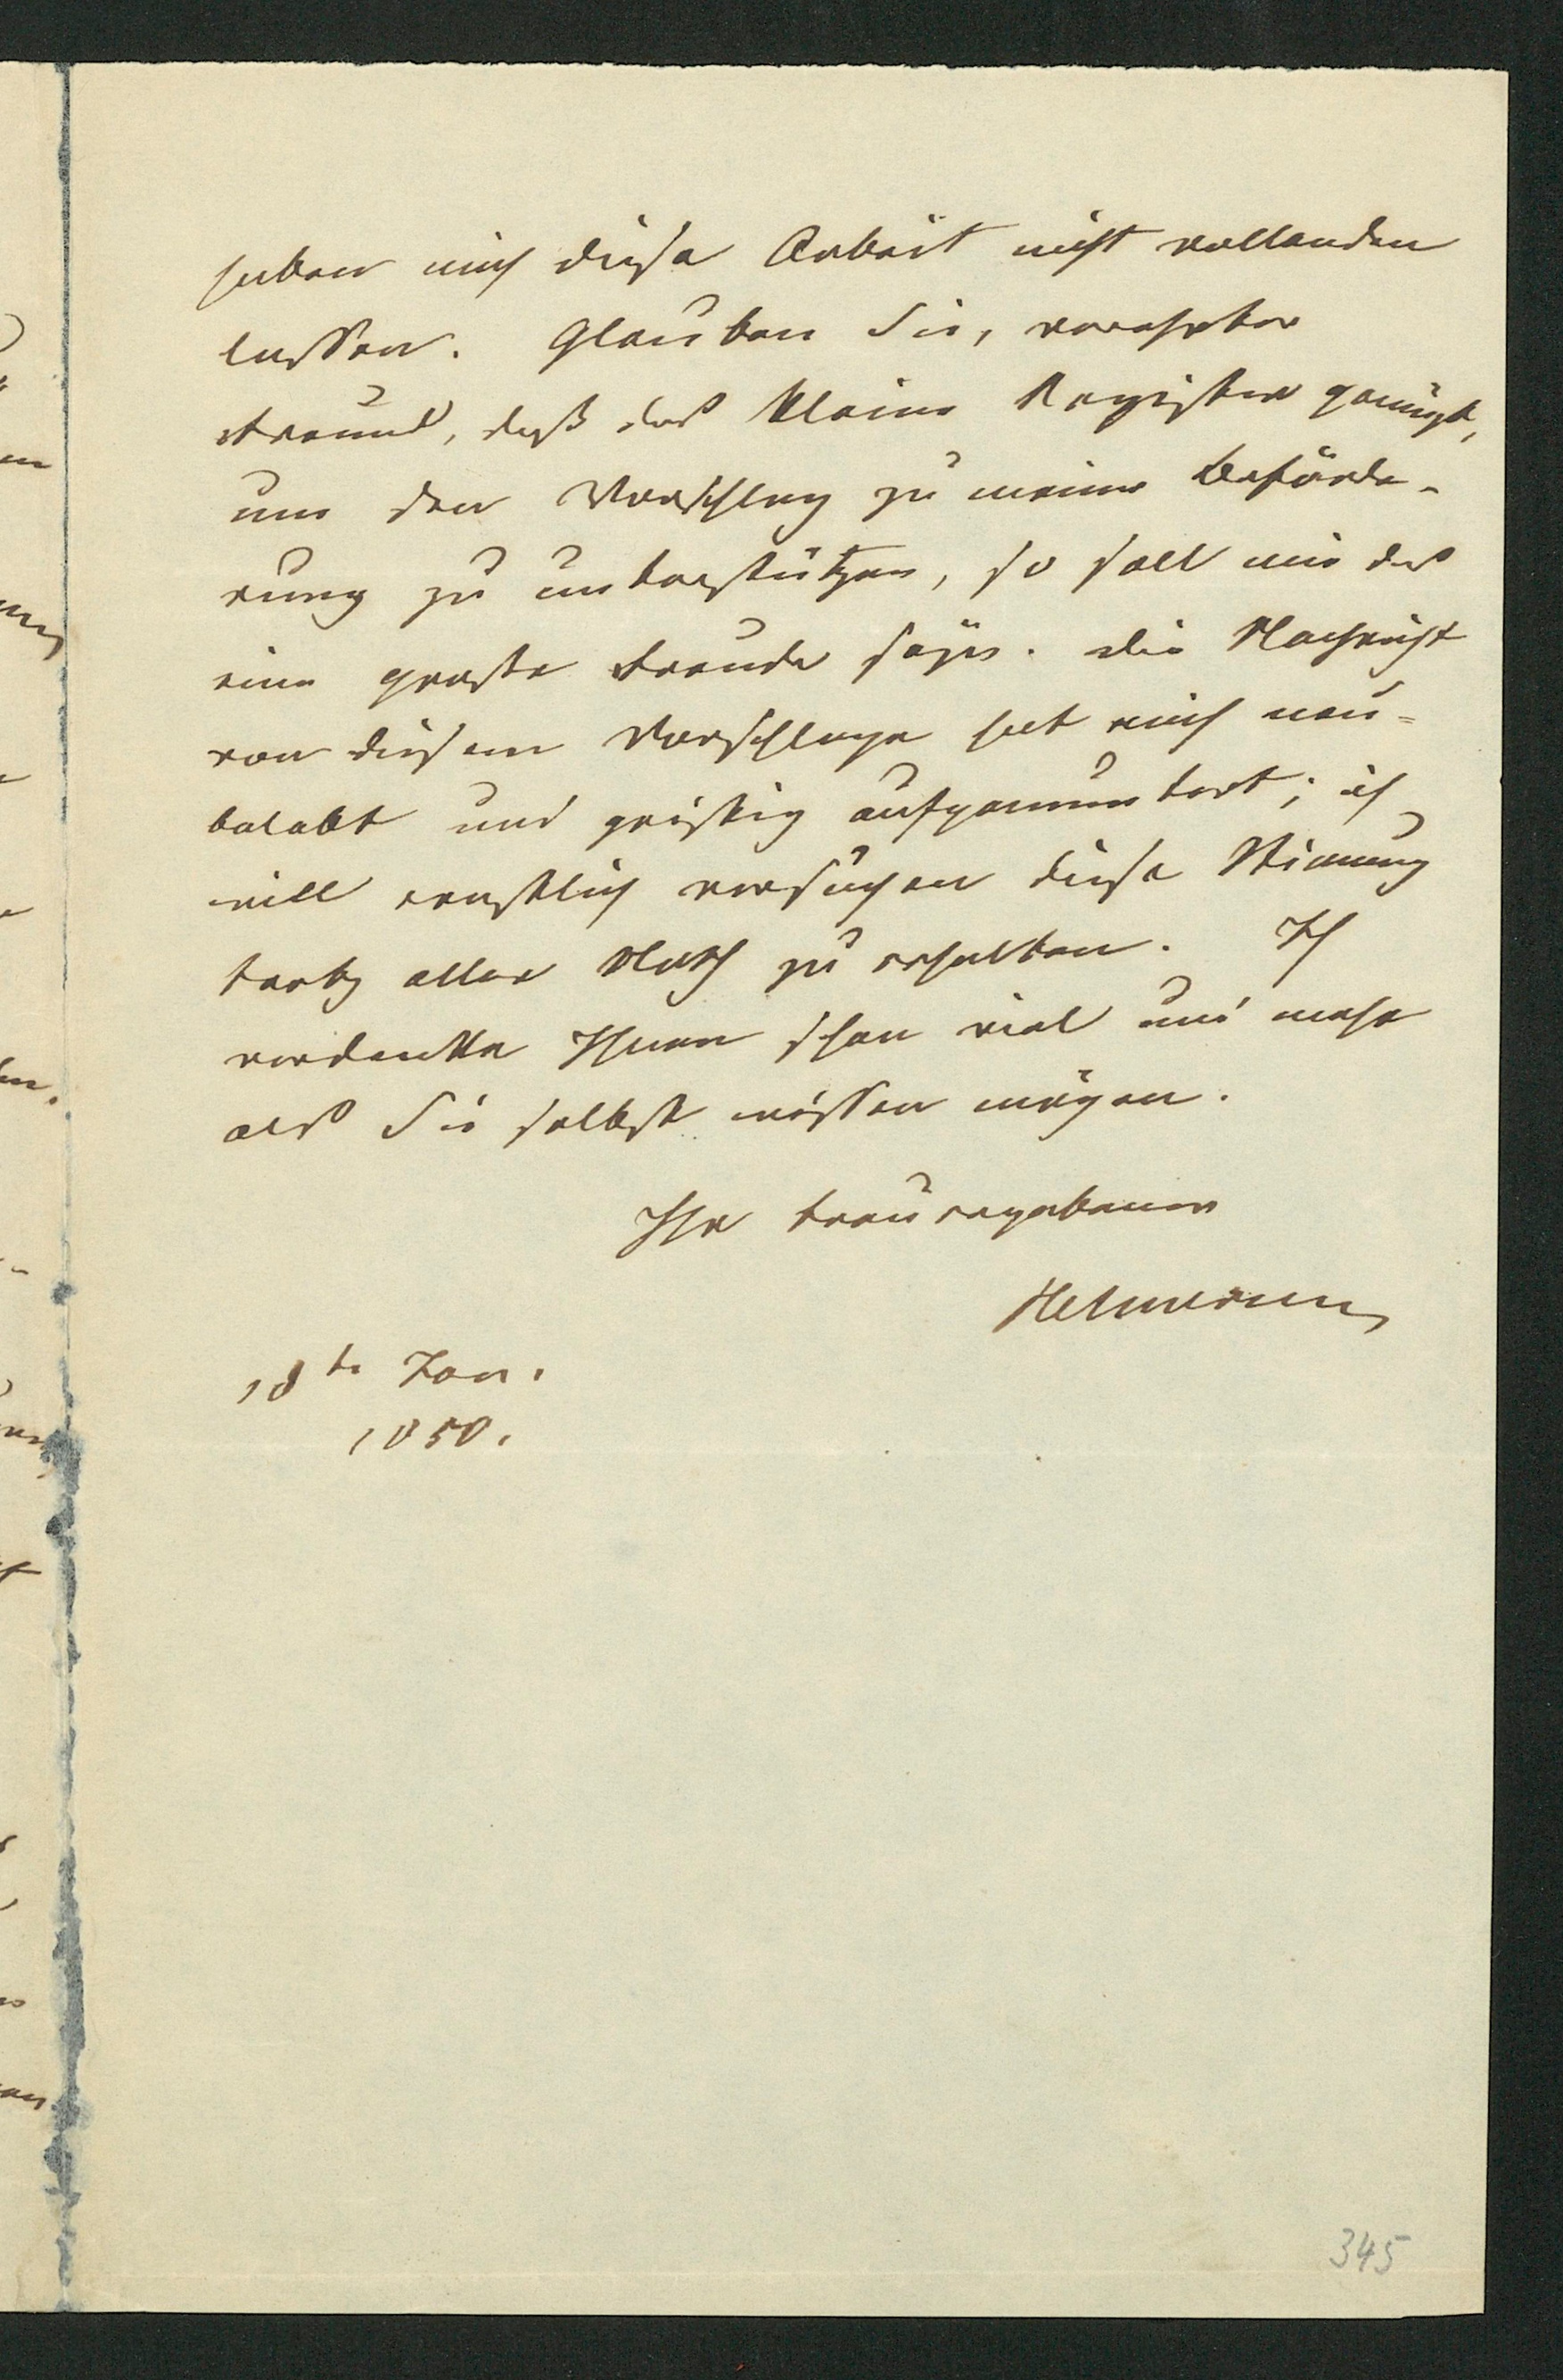 haben mich diese Arbeit nicht vollenden
lassen. Glauben Sie, verehrter
Freund, daß das kleine Register genügt,
um den Vorschlag zu meiner Beförde-
rung zu unterstützen, so soll mir das
eine große Freude seyn. Die Nachricht
von diesem Vorschlage hat mich neu-
belebt und geistig aufgemuntert; ich
will ernstlich versuchen diese Stimmung
trotz aller Noth zu erhalten. Ich
verdanke Ihnen schon viel und mehr
als Sie selbst wissen mögen.
Ihr treu ergebener
18te Jan.
1850.
345